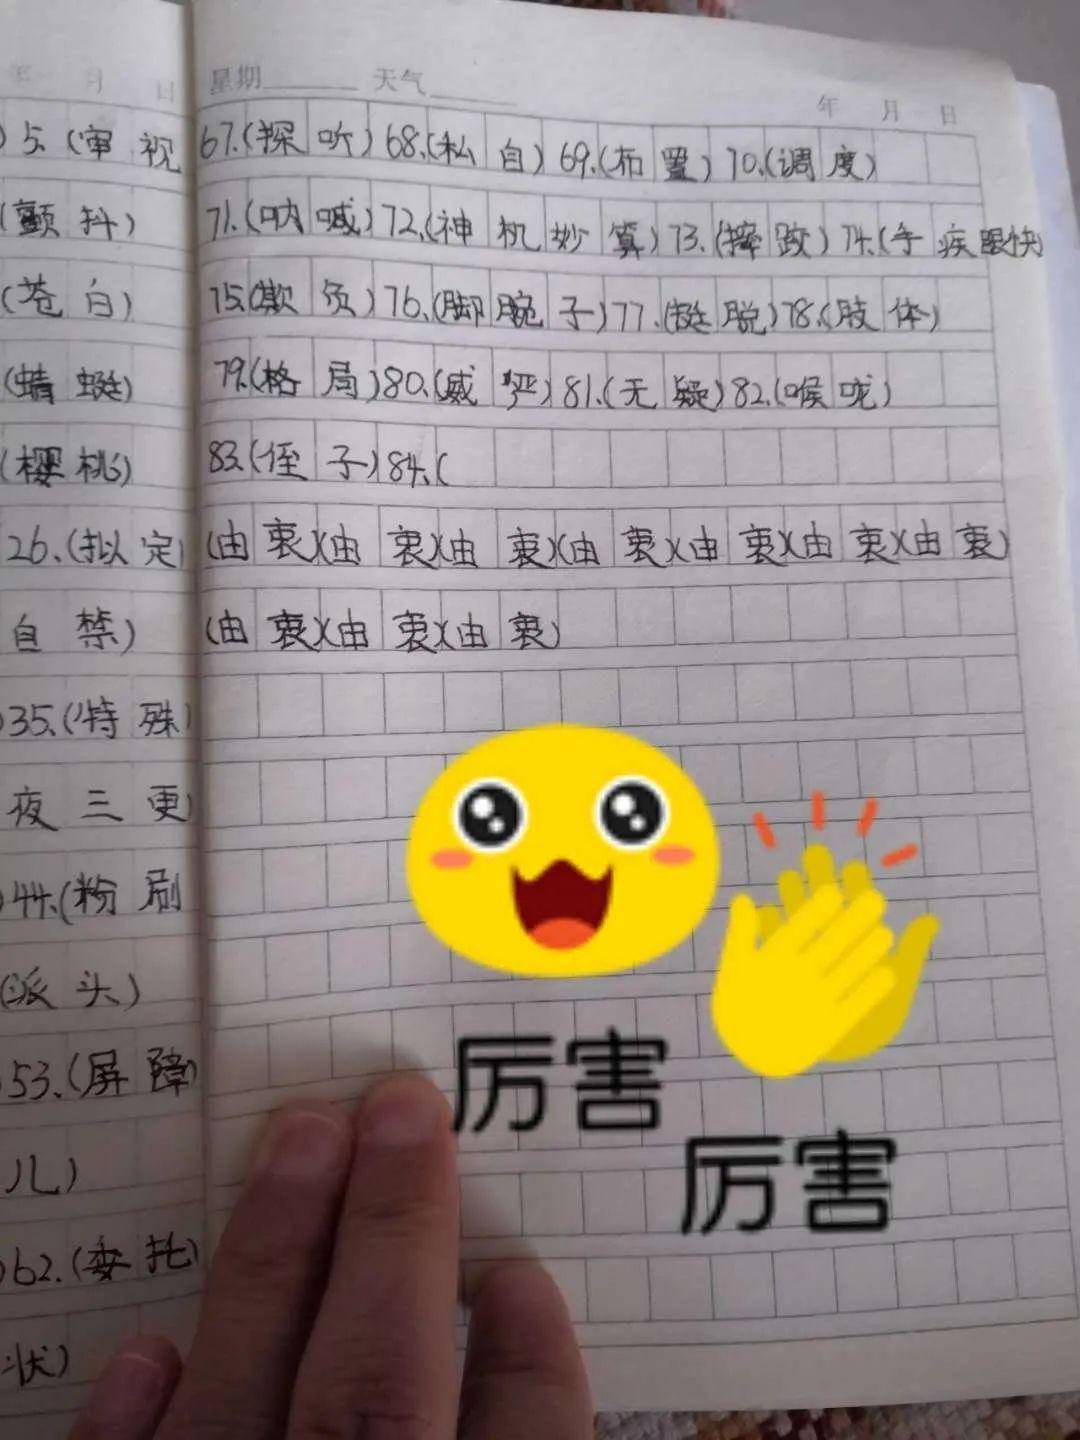 年 月 日
5.(审视
(颤抖)
(苍白)
(蜻蜓)
(樱桃)
26.(拟定)
自禁)
35.(特殊)
夜三更
44.(粉刷
(派头)
53.(屏障)
儿)
62.(委托)
状)
星期 天气
年 月 日
67.(探听)68.(私自)69.(布置)70.(调度)
71.(呐喊)72.(神机妙算)73.(摔跤)74.(手疾眼快)
75.(欺负)76.(脚腕子)77.(挺脱)78.(肢体)
79.(格局)80.(威严)81.(无疑)82.(喉咙)
83.(侄子)84.(
(由衷)(由衷)(由衷)(由衷)(由衷)(由衷)(由衷)
(由衷)(由衷)(由衷)
厉害
厉害